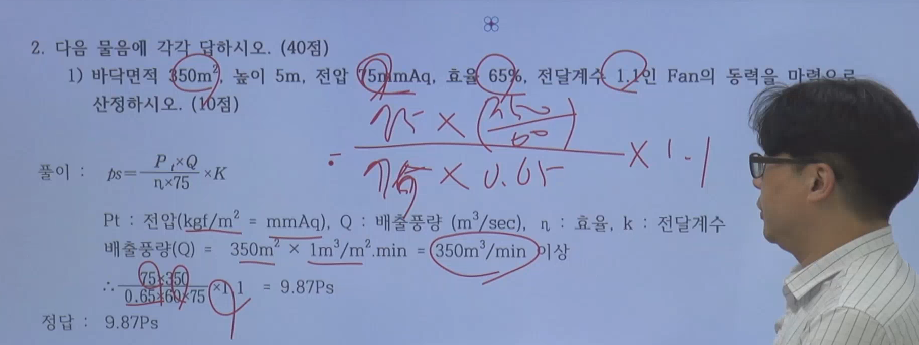 2. 다음 물음에 각각 답하시오. (40점)
1) 바닥면적 350m², 높이 5m, 전압 75mmAq, 효율 65%, 전달계수 1.1인 Fan의 동력을 마력으로
산정하시오. (10점)
75 × (350/60) / 75 × 0.65 × 1.1
풀이 : ps = Pt×Q / η×75 ×K
Pt : 전압(kgf/m² = mmAq), Q : 배출풍량 (m³/sec), η : 효율, k : 전달계수
배출풍량(Q) = 350m² × 1m³/m².min = 350m³/min 이상
∴ 75×350 / 0.65×60×75 ×1.1 = 9.87Ps
정답 : 9.87Ps